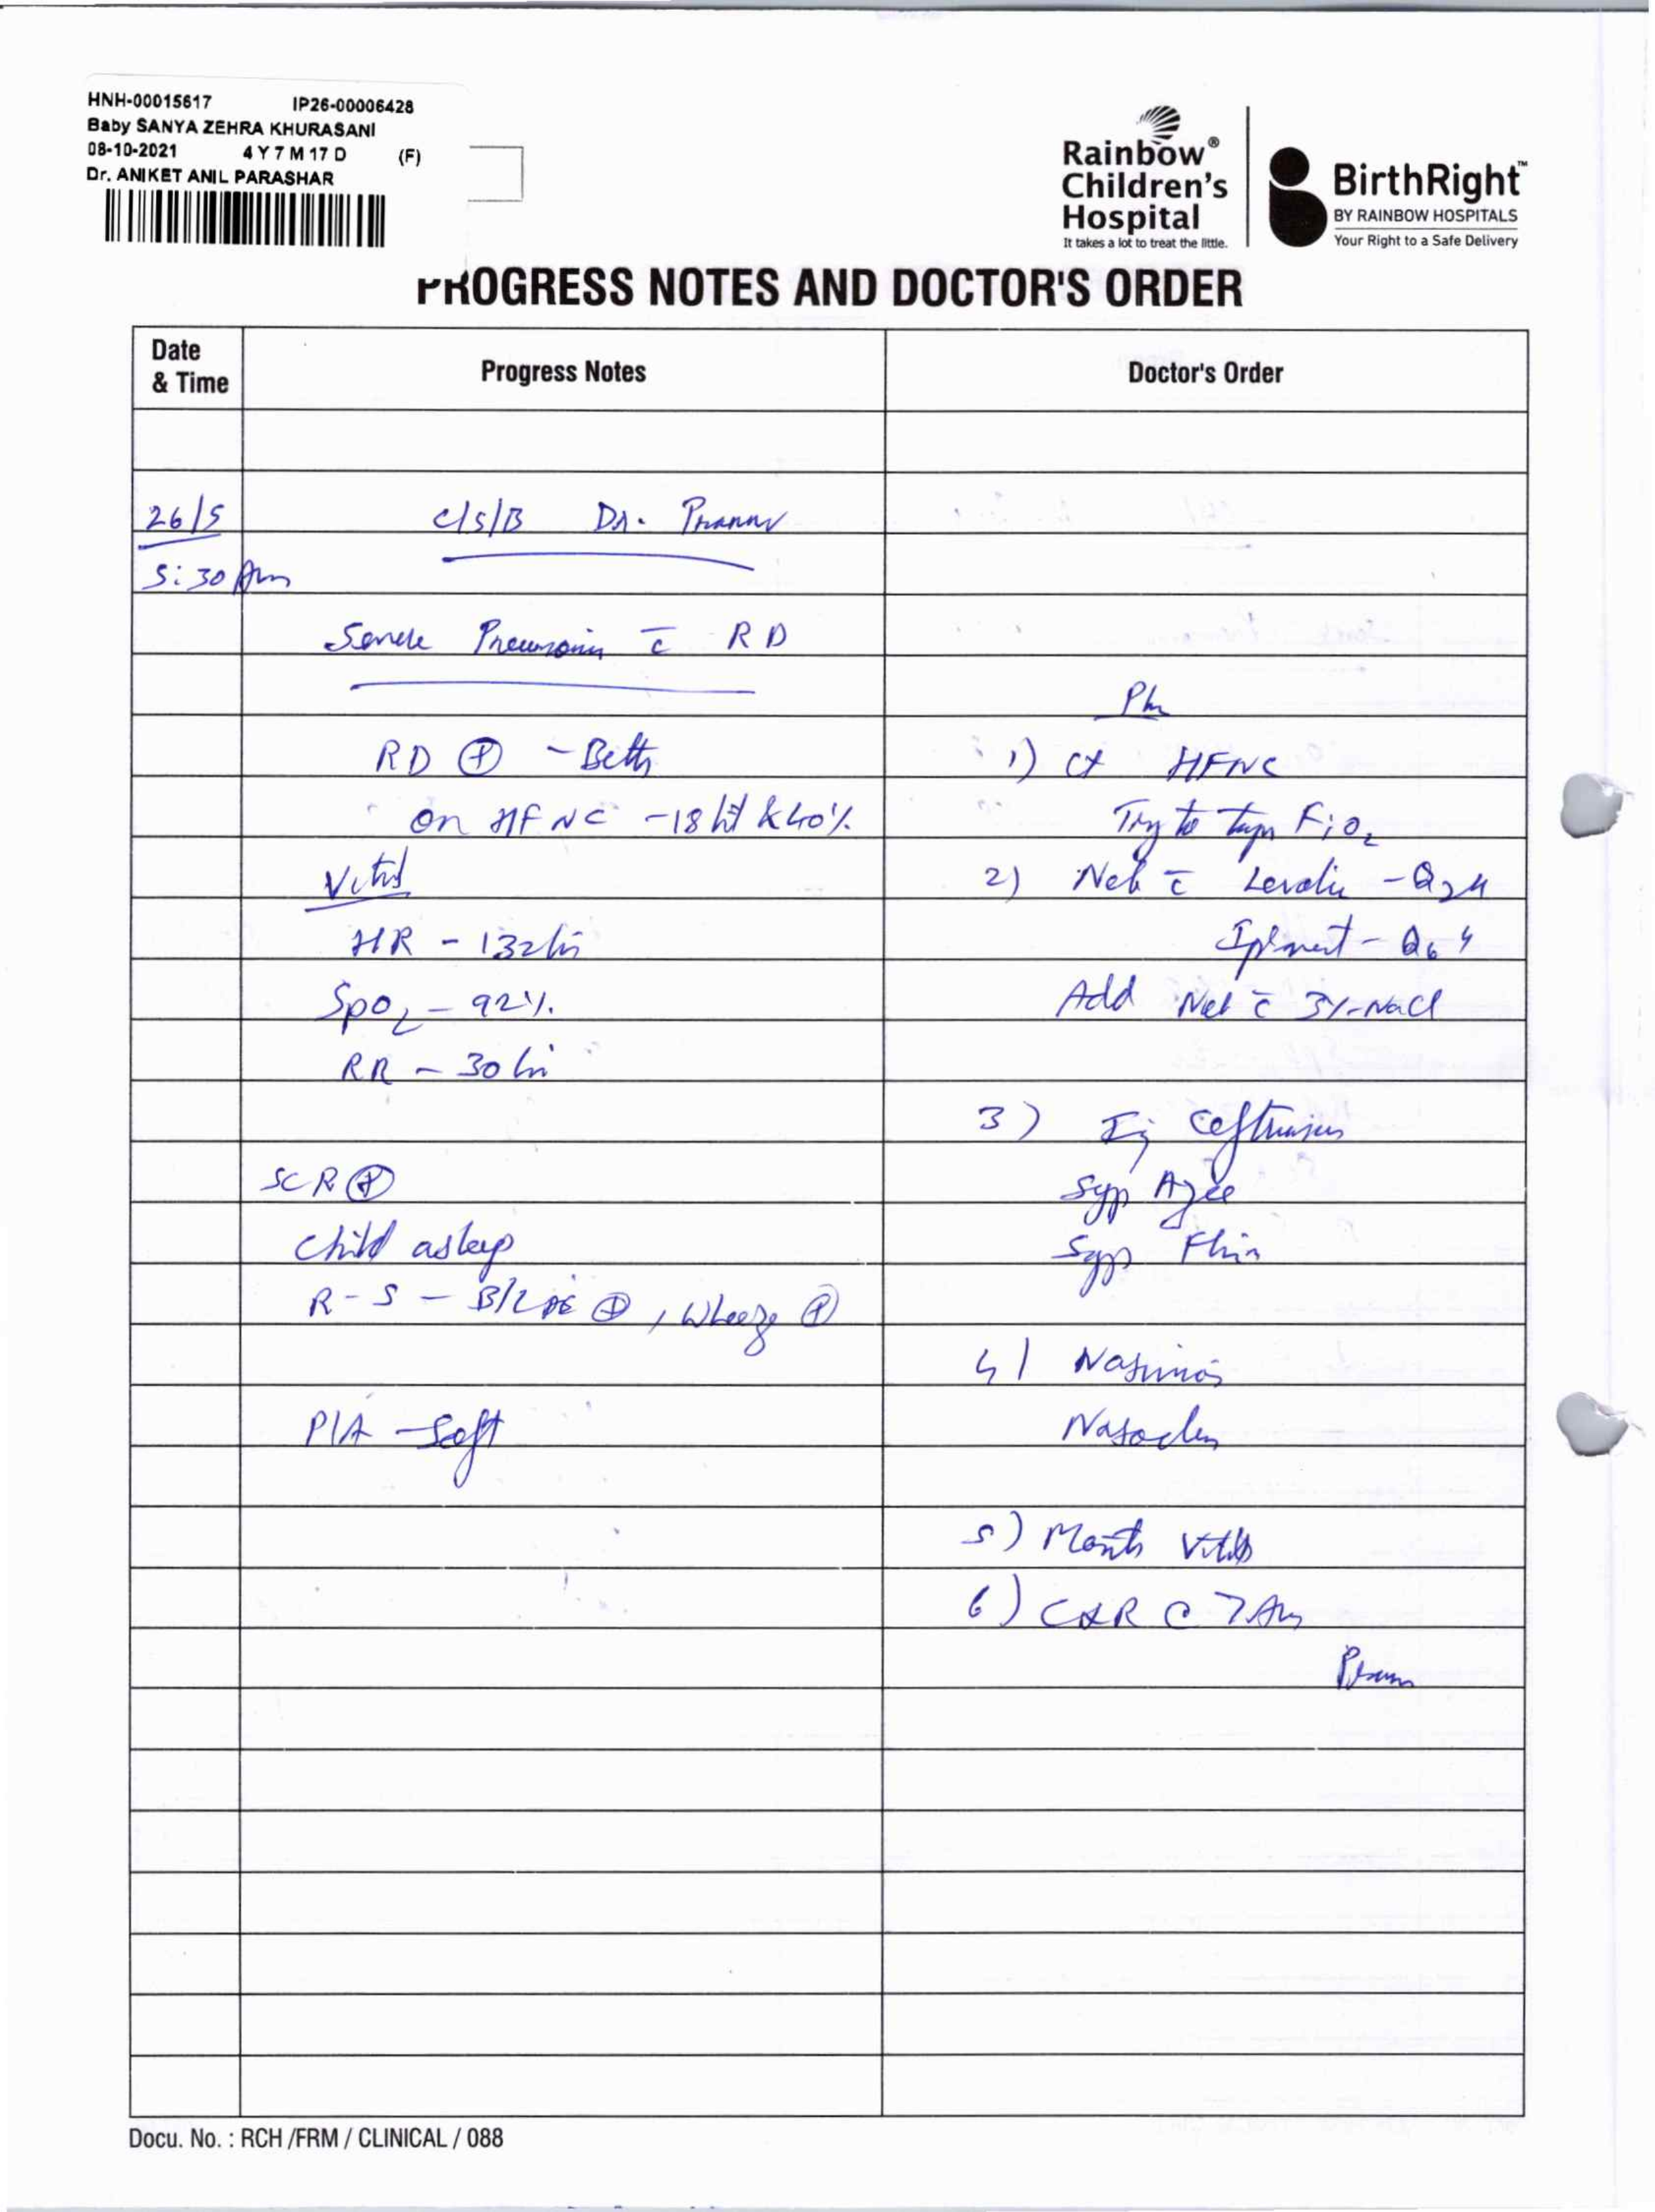 HNH-00015617 IP26-00006428
Baby SANYA ZEHRA KHURASANI
08-10-2021 4 Y 7 M 17 D (F)
Dr. ANIKET ANIL PARASHAR
Rainbow®
Children's
Hospital
It takes a lot to treat the little.
BirthRight™
BY RAINBOW HOSPITALS
Your Right to a Safe Delivery
PROGRESS NOTES AND DOCTOR'S ORDER
Date & Time Progress Notes Doctor's Order
26/5 C/S/B Dr. Pranav
5:30 Am
Severe Pneumonia c̄ RD
Plan
RD ⊕ - Better 1) Ct HFNC
On HFNC - 18 lit & 40% Try to taper FiO2
Vital 2) Neb c̄ Levolin - Q2H
HR - 132/min Q6H
SpO2 - 92% Add Neb c̄ 3% NaCl
RR - 30/min
3) Inj Ceftriaxone
SCR ⊕ Syp Azee
Child asleep Syp
R-S - B/L AE ⊕, Wheeze ⊕
4)
P/A - Soft Nasoclear
5) Monitor Vitals
6) CXR @ 7 Am
Docu. No. : RCH /FRM / CLINICAL / 088